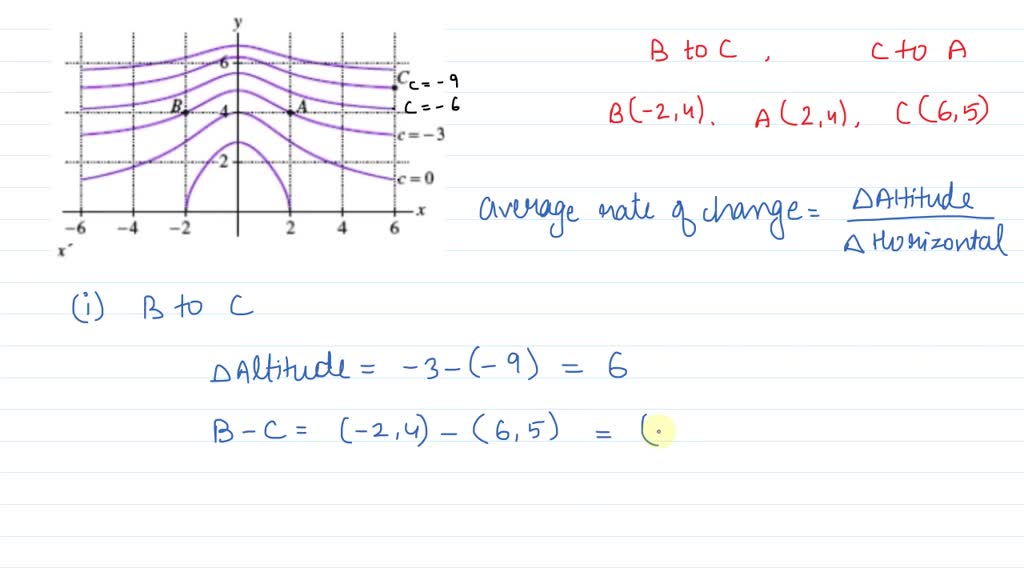 y
B to C , C to A
6
C c = -9
B 4 A c = -6
B(-2,4). A(2,4), C(6,5)
c = -3
2
c = 0
average rate of change = ΔAltitude / ΔHorizontal
x
-6 -4 -2 2 4 6
x′
(i) B to C
ΔAltitude = -3-(-9) = 6
B-C = (-2,4) - (6,5) = (